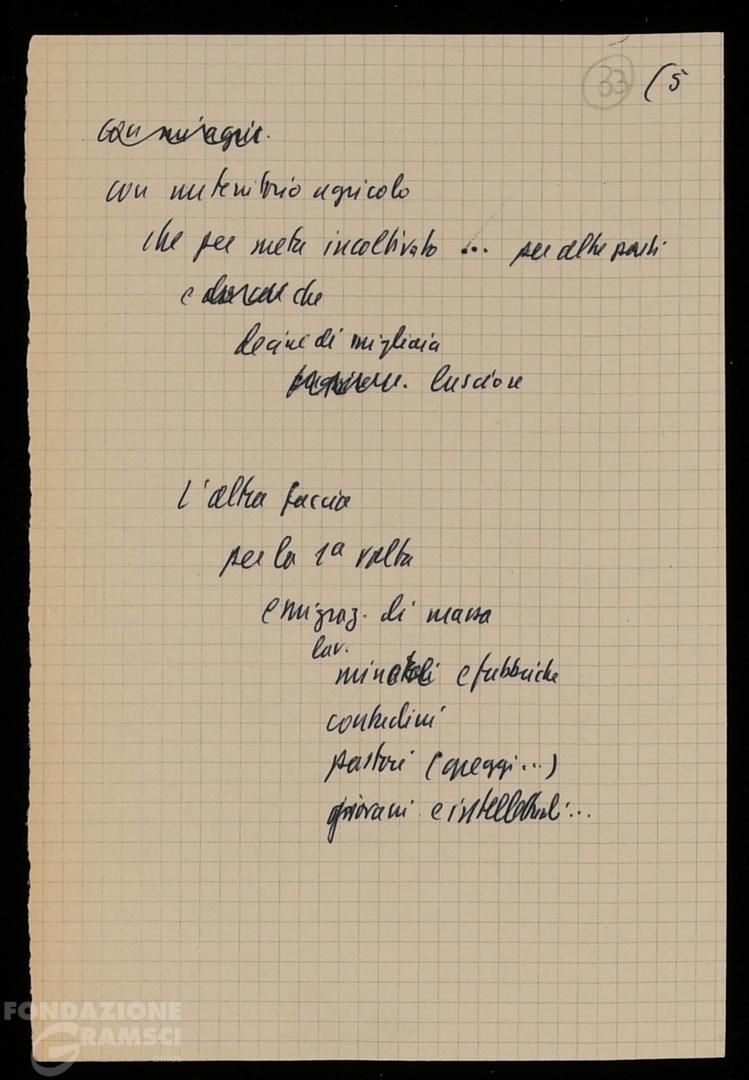 33 (5
con un'agric.
con un territorio agricolo
che per metà incoltivato ... per altre parti
e che
decine di migliaia
lasciare
l'altra faccia
per la 1ª volta
emigraz. di massa
lav.
minatori e fabbriche
contadini
pastori (greggi...)
giovani e intellettuali...
FONDAZIONE
GRAMSCI
onlus